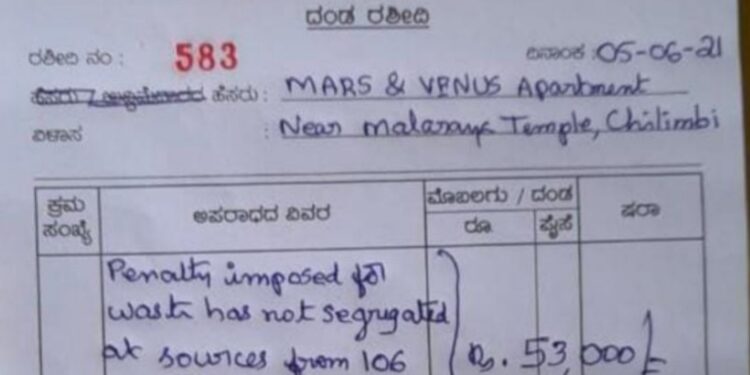 ದಂಡ ರಶೀದಿ
ರಶೀದಿ ನಂ : 583 ದಿನಾಂಕ :05-06-21
ಹೆಸರು : MARS & VENUS Apartment
ವಿಳಾಸ : Near Malaraya Temple, Chilimbi
ಕ್ರಮ ಸಂಖ್ಯೆ ಅಪರಾಧದ ವಿವರ ಮೊಬಲಗು / ದಂಡ ಷರಾ
ರೂ. ಪೈಸೆ
Penalty imposed for
waste has not segregated
at sources from 106 Rs. 53,000/-